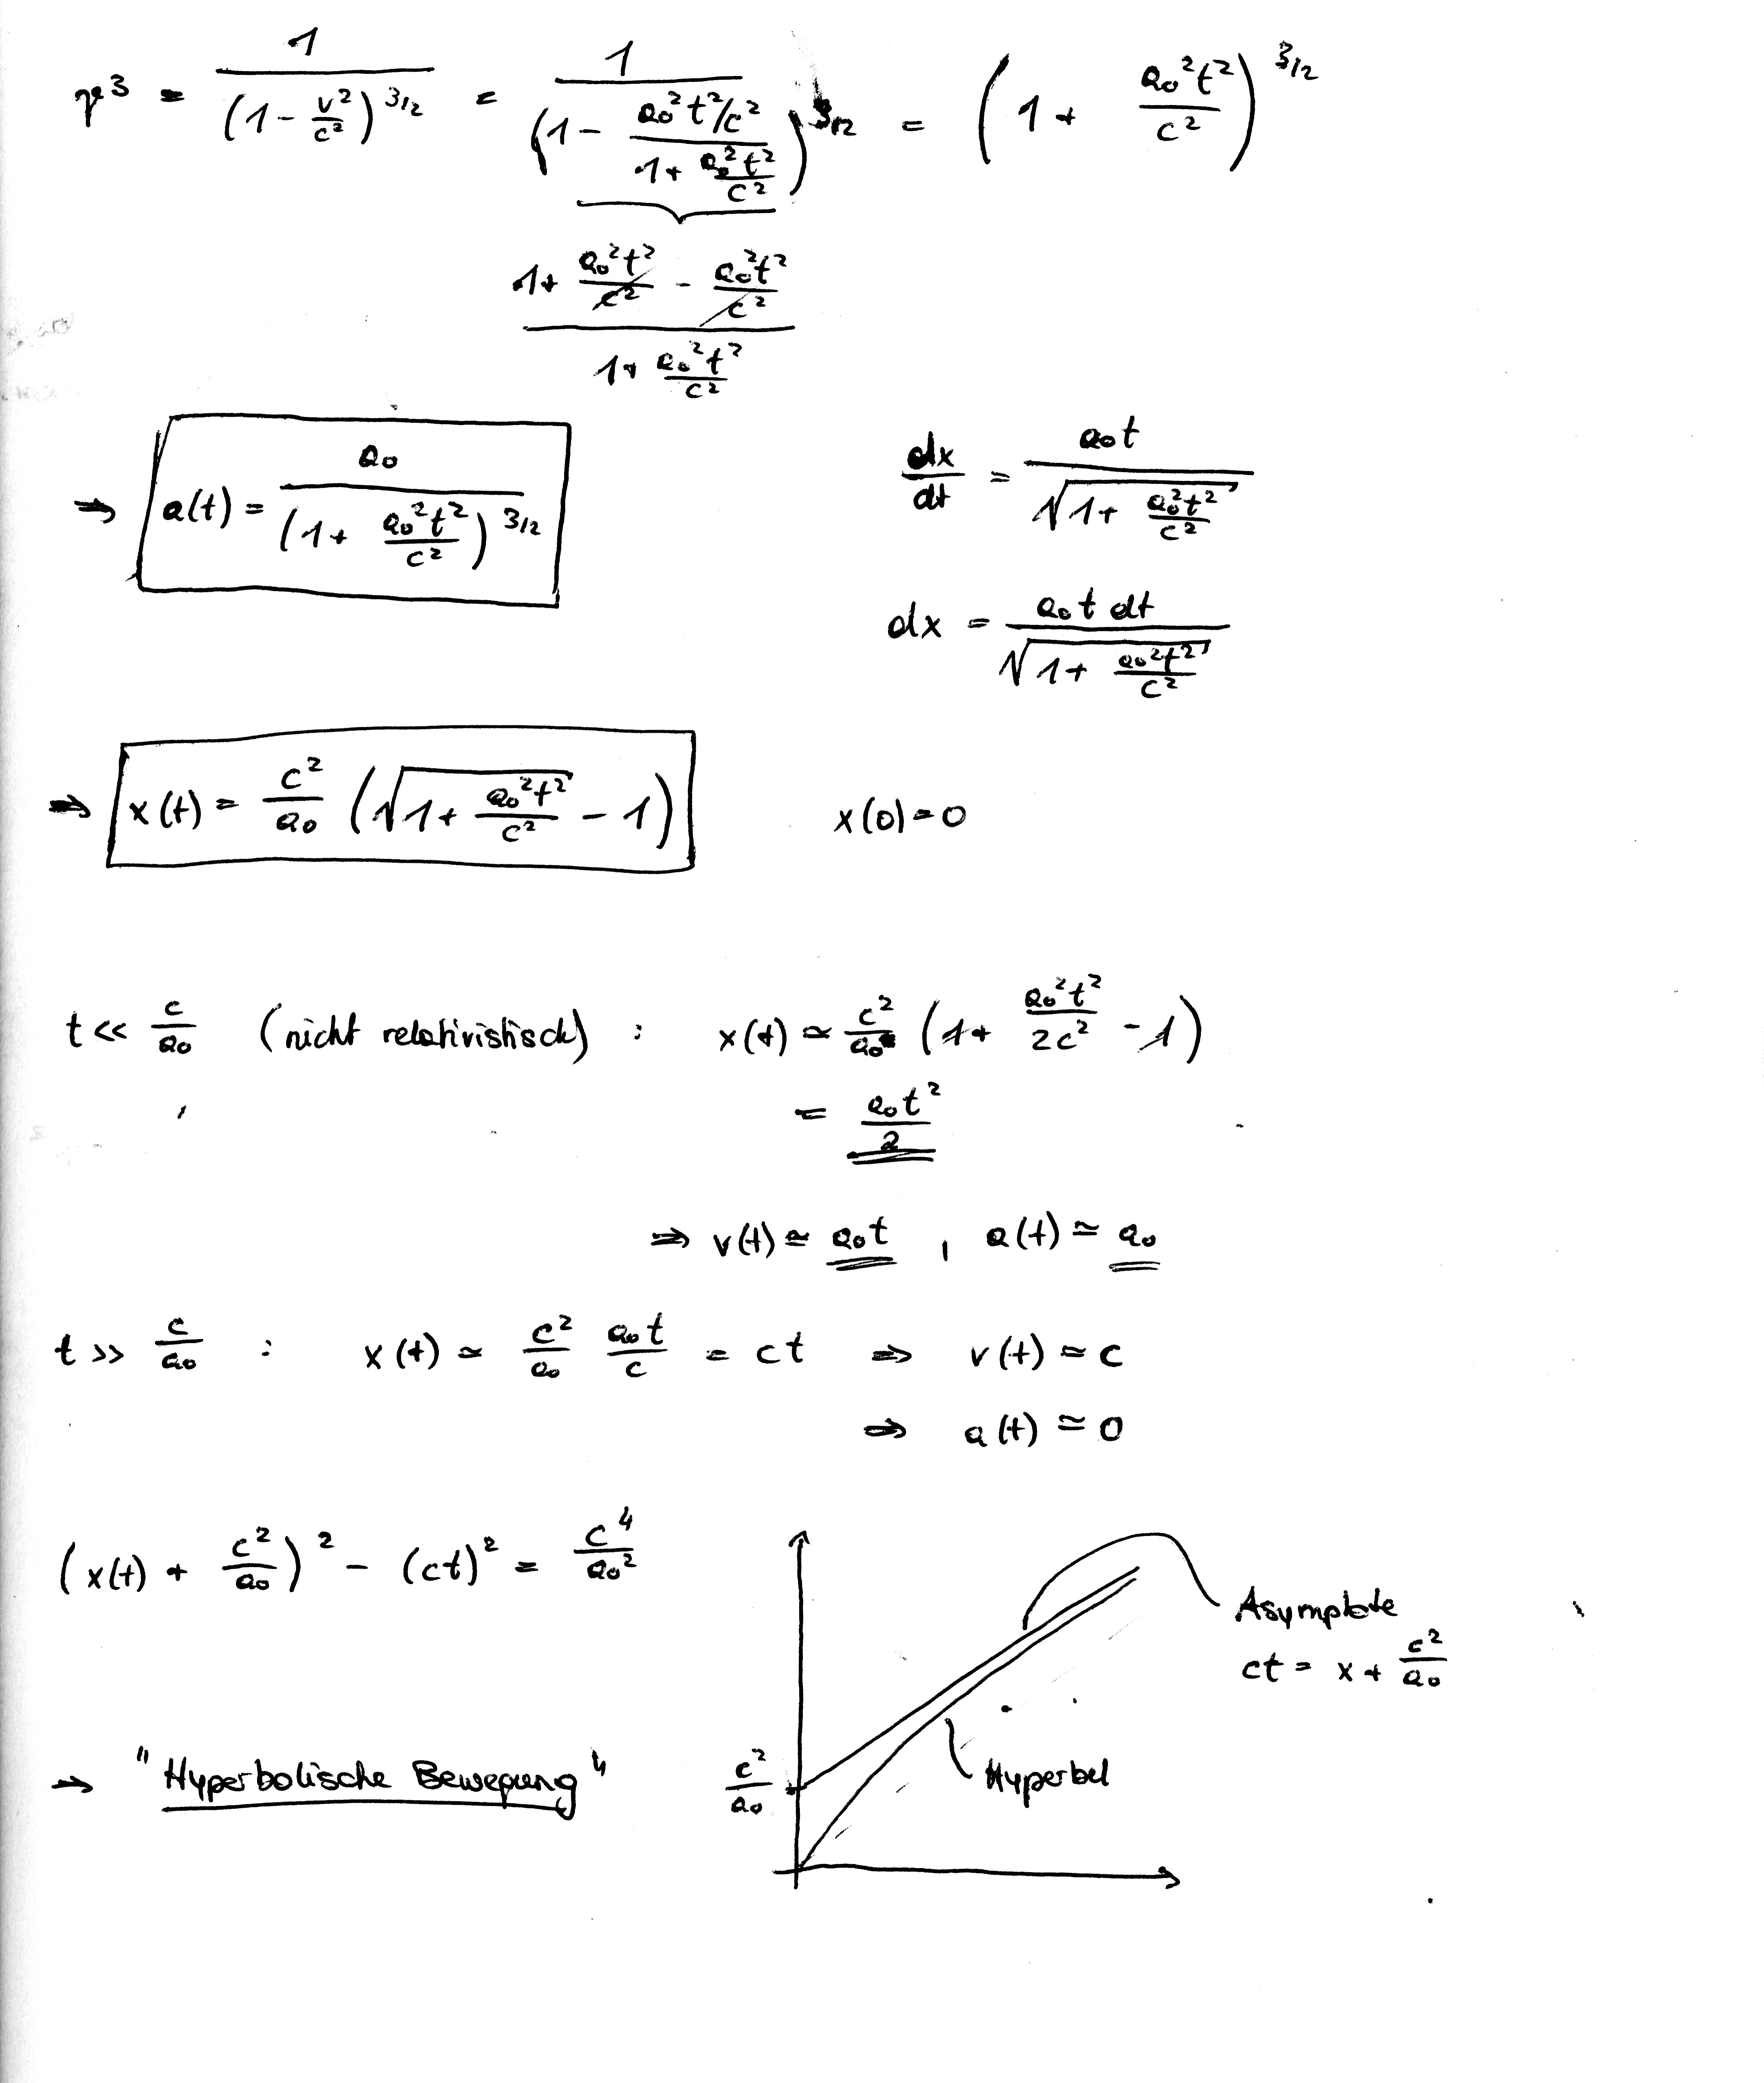 γ³ = 1/(1 - v²/c²)^(3/2) = 1/(1 - (a₀²t²/c²)/(1 + a₀²t²/c²))^(3/2) = (1 + a₀²t²/c²)^(3/2)
(1 + a₀²t²/c² - a₀²t²/c²)/(1 + a₀²t²/c²)
⇒ a(t) = a₀/(1 + a₀²t²/c²)^(3/2)
dx/dt = a₀t/√(1 + a₀²t²/c²)
dx = a₀ t dt/√(1 + a₀²t²/c²)
⇒ x(t) = c²/a₀ (√(1 + a₀²t²/c²) - 1) x(0) = 0
t << c/a₀ (nicht relativistisch) : x(t) ≃ c²/a₀ (1 + a₀²t²/2c² - 1)
= a₀t²/2
⇒ v(t) ≃ a₀t , a(t) ≃ a₀
t >> c/a₀ : x(t) ≃ c²/a₀ a₀t/c = ct ⇒ v(t) ≃ c
⇒ a(t) ≃ 0
(x(t) + c²/a₀)² - (ct)² = c⁴/a₀²
Asymptote
ct = x + c²/a₀
→ "Hyperbolische Bewegung"
c²/a₀
Hyperbel